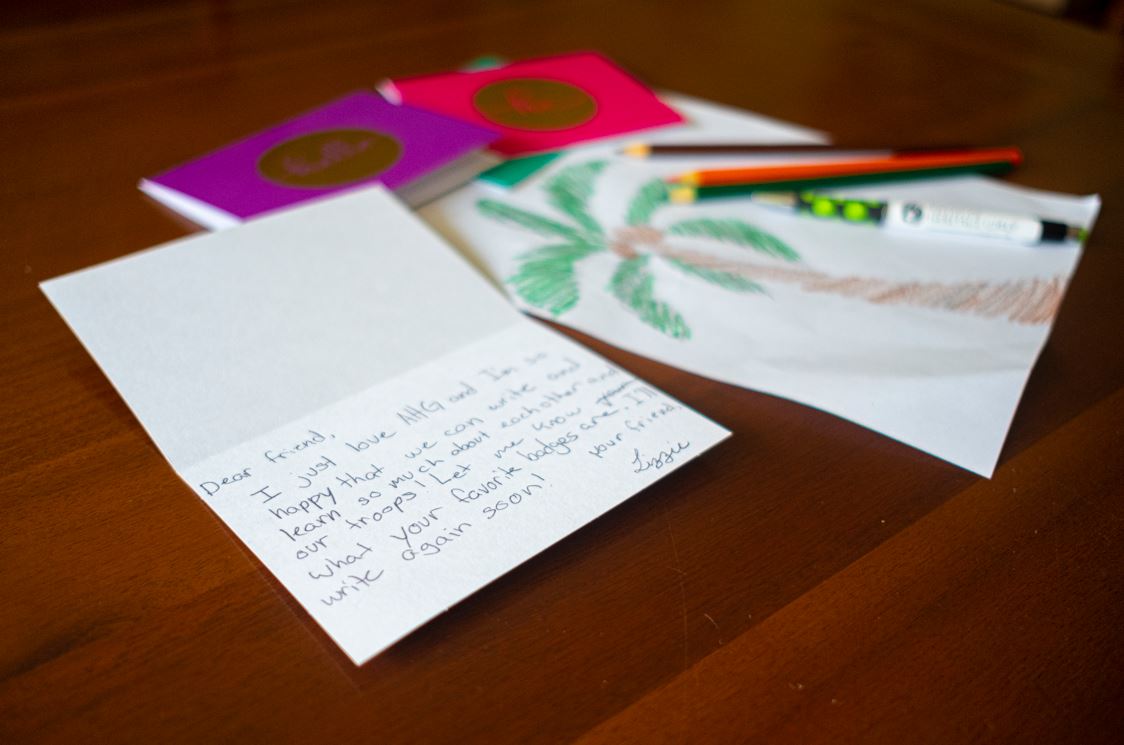 hello
Dear friend,
I just love AHG and I'm so
happy that we can write and
learn so much about each other and
our troops! Let me know
what your favorite badges are. I'll
write again soon!
your friend,
Lizzie